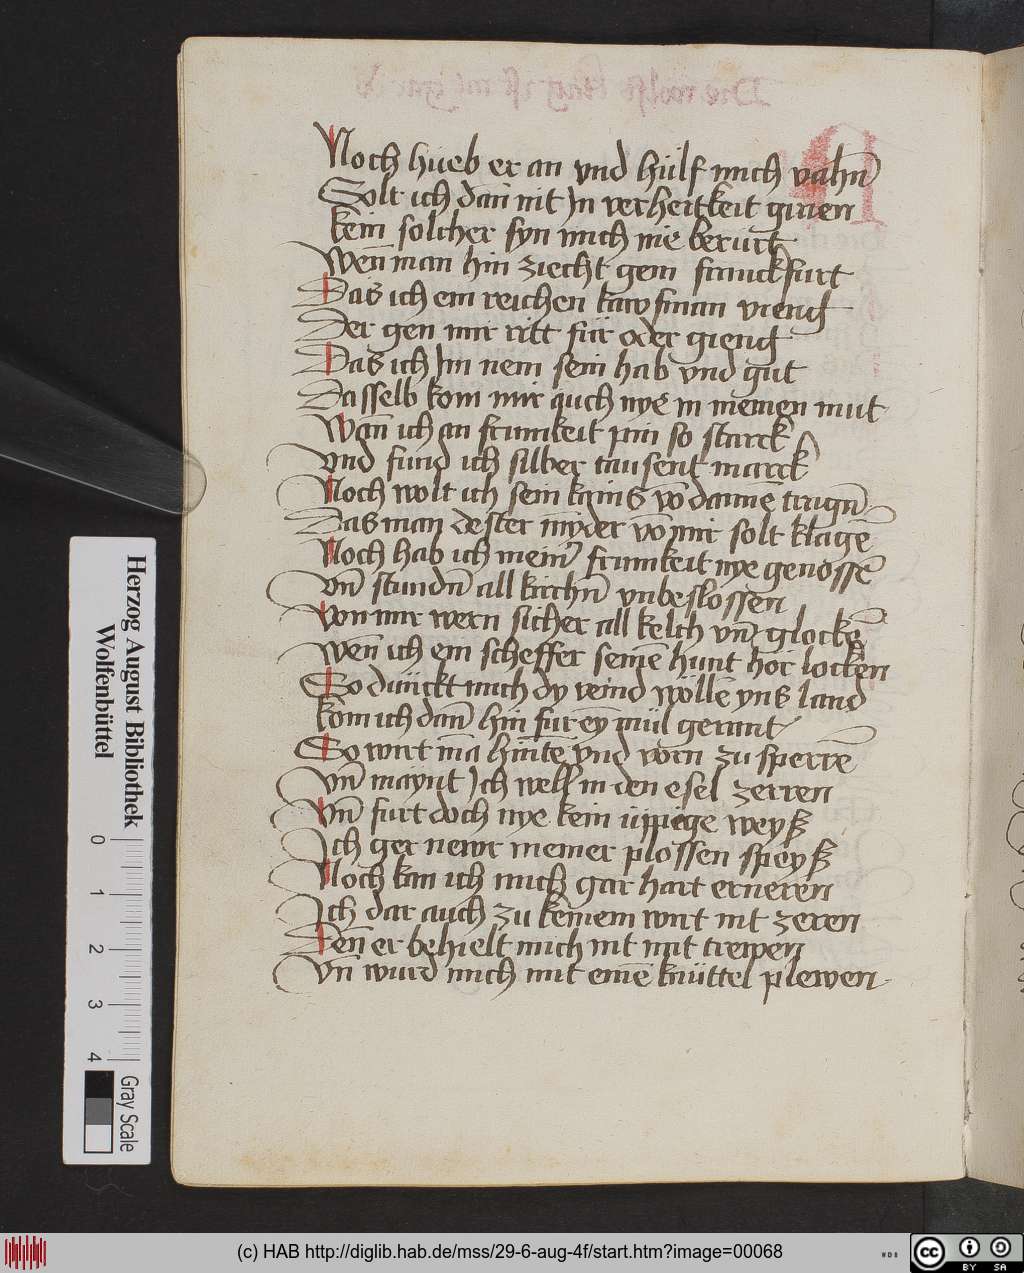 Noch hueb er an vnd hulf mich vahn̄
Solt ich dan̄ nit In verheitkeit
kein solcher syn mich nie berurt
Wen̄ man hin ziecht gem franckfurt
Das ich em reichen kawfman viend
Der gen mir ritt für oder giend
Das ich Im nem sein hab vnd gut
Dasselb kom mir auch nye in meinen mut
Wan̄ ich an frumkeit pin so starck
vnd fund ich silber tausent marck
Noch wolt ich sein kains vō danne tragn̄
Das man dester mynder vō mir solt klagē
Noch hab ich mein' frumkeit nye genossē
vn̄ stundn̄ all kirchn̄ vnbeslossen
von mir wern sicher all kelch vn̄ glockē
Wen̄ ich ein scheffer seinē hunt hor locken
So dunckt mich dy veind wöllē vns land
kom ich dan̄ hin fur ey mül gerant
So wirt mā hintē vnd vorn zu sperrē
vn̄ maynt Ich well in den esel zerren
Vn̄ furt doch nye kein üppige weyß
Ich ger newr meiner plossen speyß
Noch kan ich mich gar hart erneren
Ich dar auch zu keinem wirt nit zeren
Den̄ er behielt mich nit mit trewen
vn̄ wurd mich mit einē knüttel plewen
Herzog August Bibliothek
Wolfenbüttel
0 1 2 3 4
Gray Scale
(c) HAB http://diglib.hab.de/mss/29-6-aug-4f/start.htm?image=00068
WDB
cc BY SA